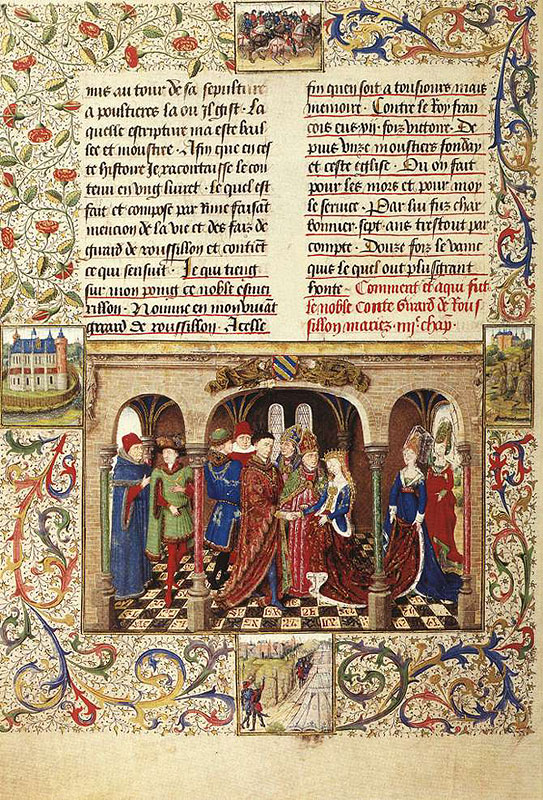 mis au tour de sa sepulture
a poultieres la ou il gist. La
quelle escripture ma este bail
lee et moustree. Afin que en ces
te histoire Je racontaisse le con
tenu en vng liuret. le quel est
fait et compose par rime faisant
mencion de la vie et des fais de
guard de roussillon et contient
ce qui sensuit. Je qui tieng
sur mon poing ce noble esme
rillon. Nomme en mon viuant
gerard de roussillon. Acelle
fin quen soit a tousiours mais
memoire. Contre le Roy fran
cois eus. vij. fois victoire. De
puis vnze moustiers fonday
et ceste eglise. Ou on fait
pour les mors et pour moy
le seruice. Par lui fus char
bonnier sept. ans trestout par
compte. Douze fois le vain
quis le quel out plus grant
honte. Comment et a qui fut
le noble Conte Girard de Rous
sillon mariez. iiie. chap.